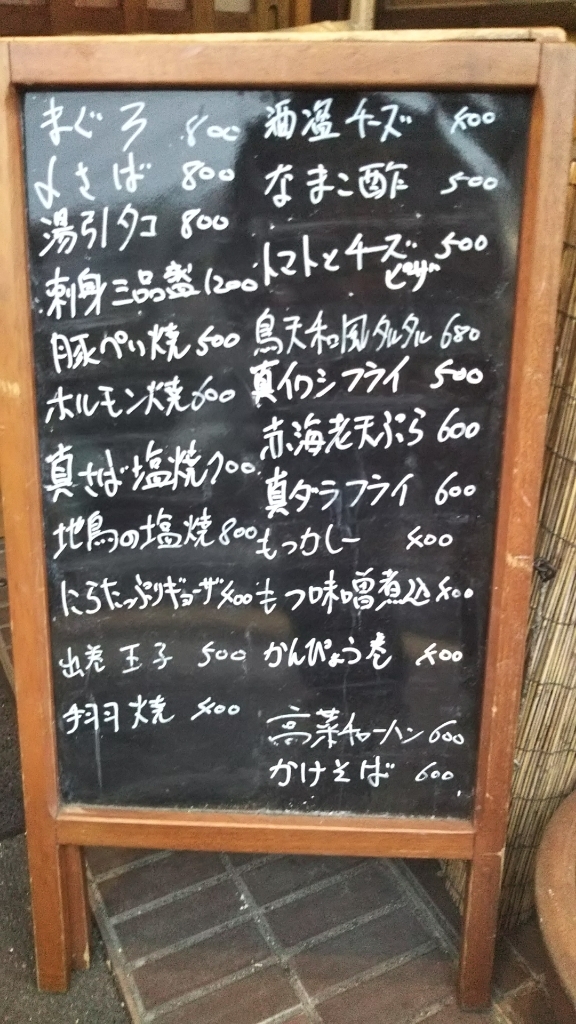 まぐろ 800
〆さば 800
湯引タコ 800
刺身三品盛 1200
豚ぺい焼 500
ホルモン焼 600
真さば塩焼 700
地鳥の塩焼 800
にらたっぷりギョーザ 400
出巻玉子 500
手羽焼 400
酒盗チーズ 400
なまこ酢 500
トマトとチーズ 500
鳥天和風タルタル 680
真イワシフライ 500
赤海老天ぷら 600
真ダラフライ 600
もつカレー 400
もつ味噌煮込 400
かんぴょう巻 400
高菜チャーハン 600
かけそば 600